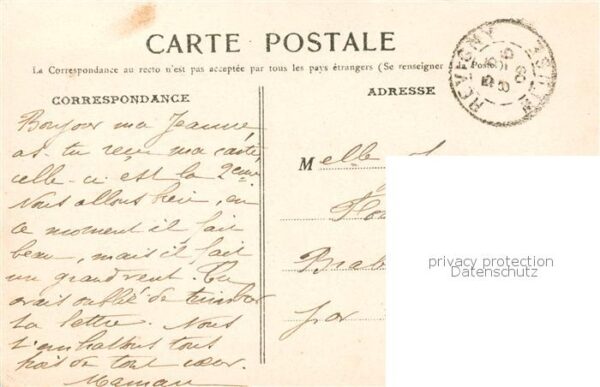 CARTE POSTALE
La Correspondance au recto n'est pas acceptée par tous les pays étrangers (Se renseigner Poste.)
CORRESPONDANCE
ADRESSE
REVIGNY
MEUSE
Bonjour ma Jeanne,
as-tu reçu ma carte,
celle-ci est la 2eme
Nous allons bien, en
ce moment il fait
beau, mais il fait
un grand vent. Tu
avais oublié de timbrer
ta lettre. Nous
t'embrassons tous
de tout cœur.
Maman
Melle
par
privacy protection
Datenschutz